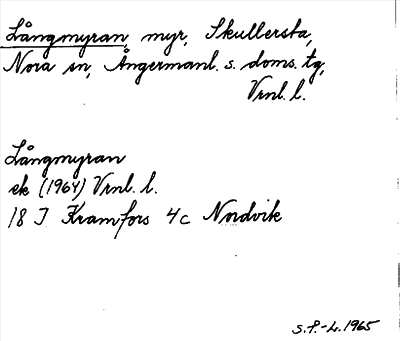 Långmyran, myr, Skullersta,
Nora sn, Ångermanl. s. doms. tg,
Vrnl. l.
Långmyran
ek (1964) Vrnl. l.
18 J Kramfors 4c Nordvik
S.P.-L. 1965